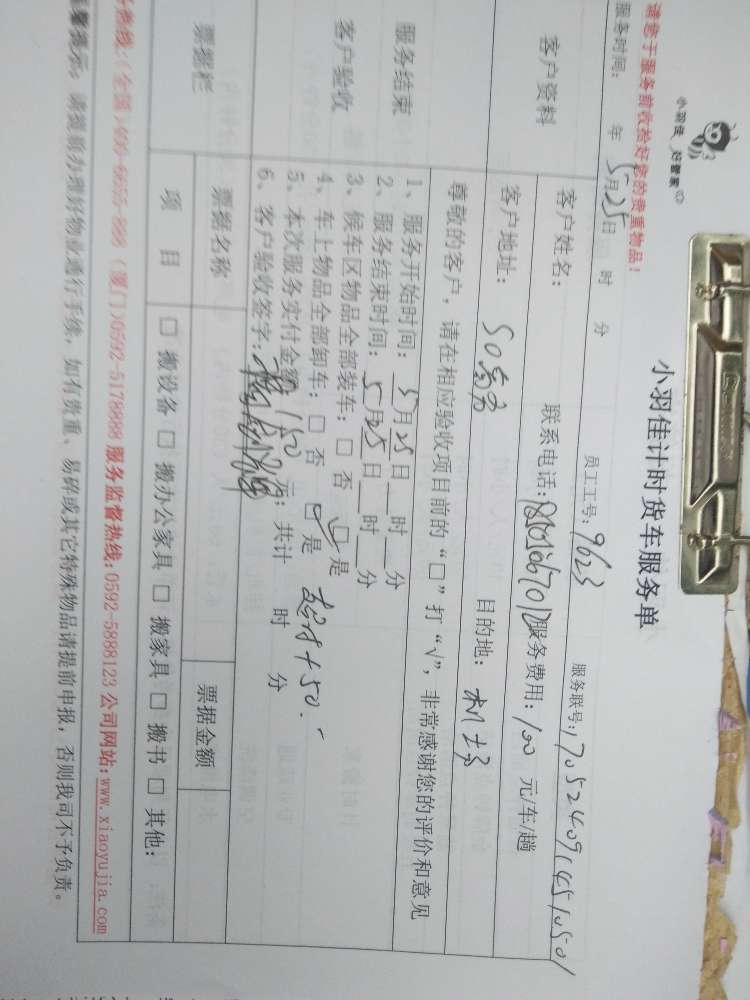 小羽佳 好管家
小羽佳计时货车服务单
请您于服务前收拾好您的贵重物品!
员工工号: 9623
服务联号:
服务时间: 年 5月25日 时 分
客户资料
客户姓名: 联系电话: 服务费用: 100 元/车/趟
客户地址: 目的地: 机场
尊敬的客户, 请在相应验收项目前的“□”打“√”, 非常感谢您的评价和意见
服务结束
客户验收
1、服务开始时间: 5月25日__时__分
2、服务结束时间: 5月25日__时__分
3、候车区物品全部装车: □ 否 ☑ 是
4、车上物品全部卸车: □ 否 ☑ 是 超时+50.
5、本次服务实付金额: 150 元; 共计 时 分
6、客户验收签字:
票据栏
票据名称 票据金额
项 目 □ 搬设备 □ 搬办公家具 □ 搬家具 □ 搬书 □ 其他:
热线:(全国)400-6655-888 (厦门)0592-5178888 服务监督热线:0592-5888123 公司网站:www.xiaoyujia.com
提示: 请提前办理好物业通行手续, 如有贵重、易碎或其它特殊物品请提前申报, 否则我司不予负责。